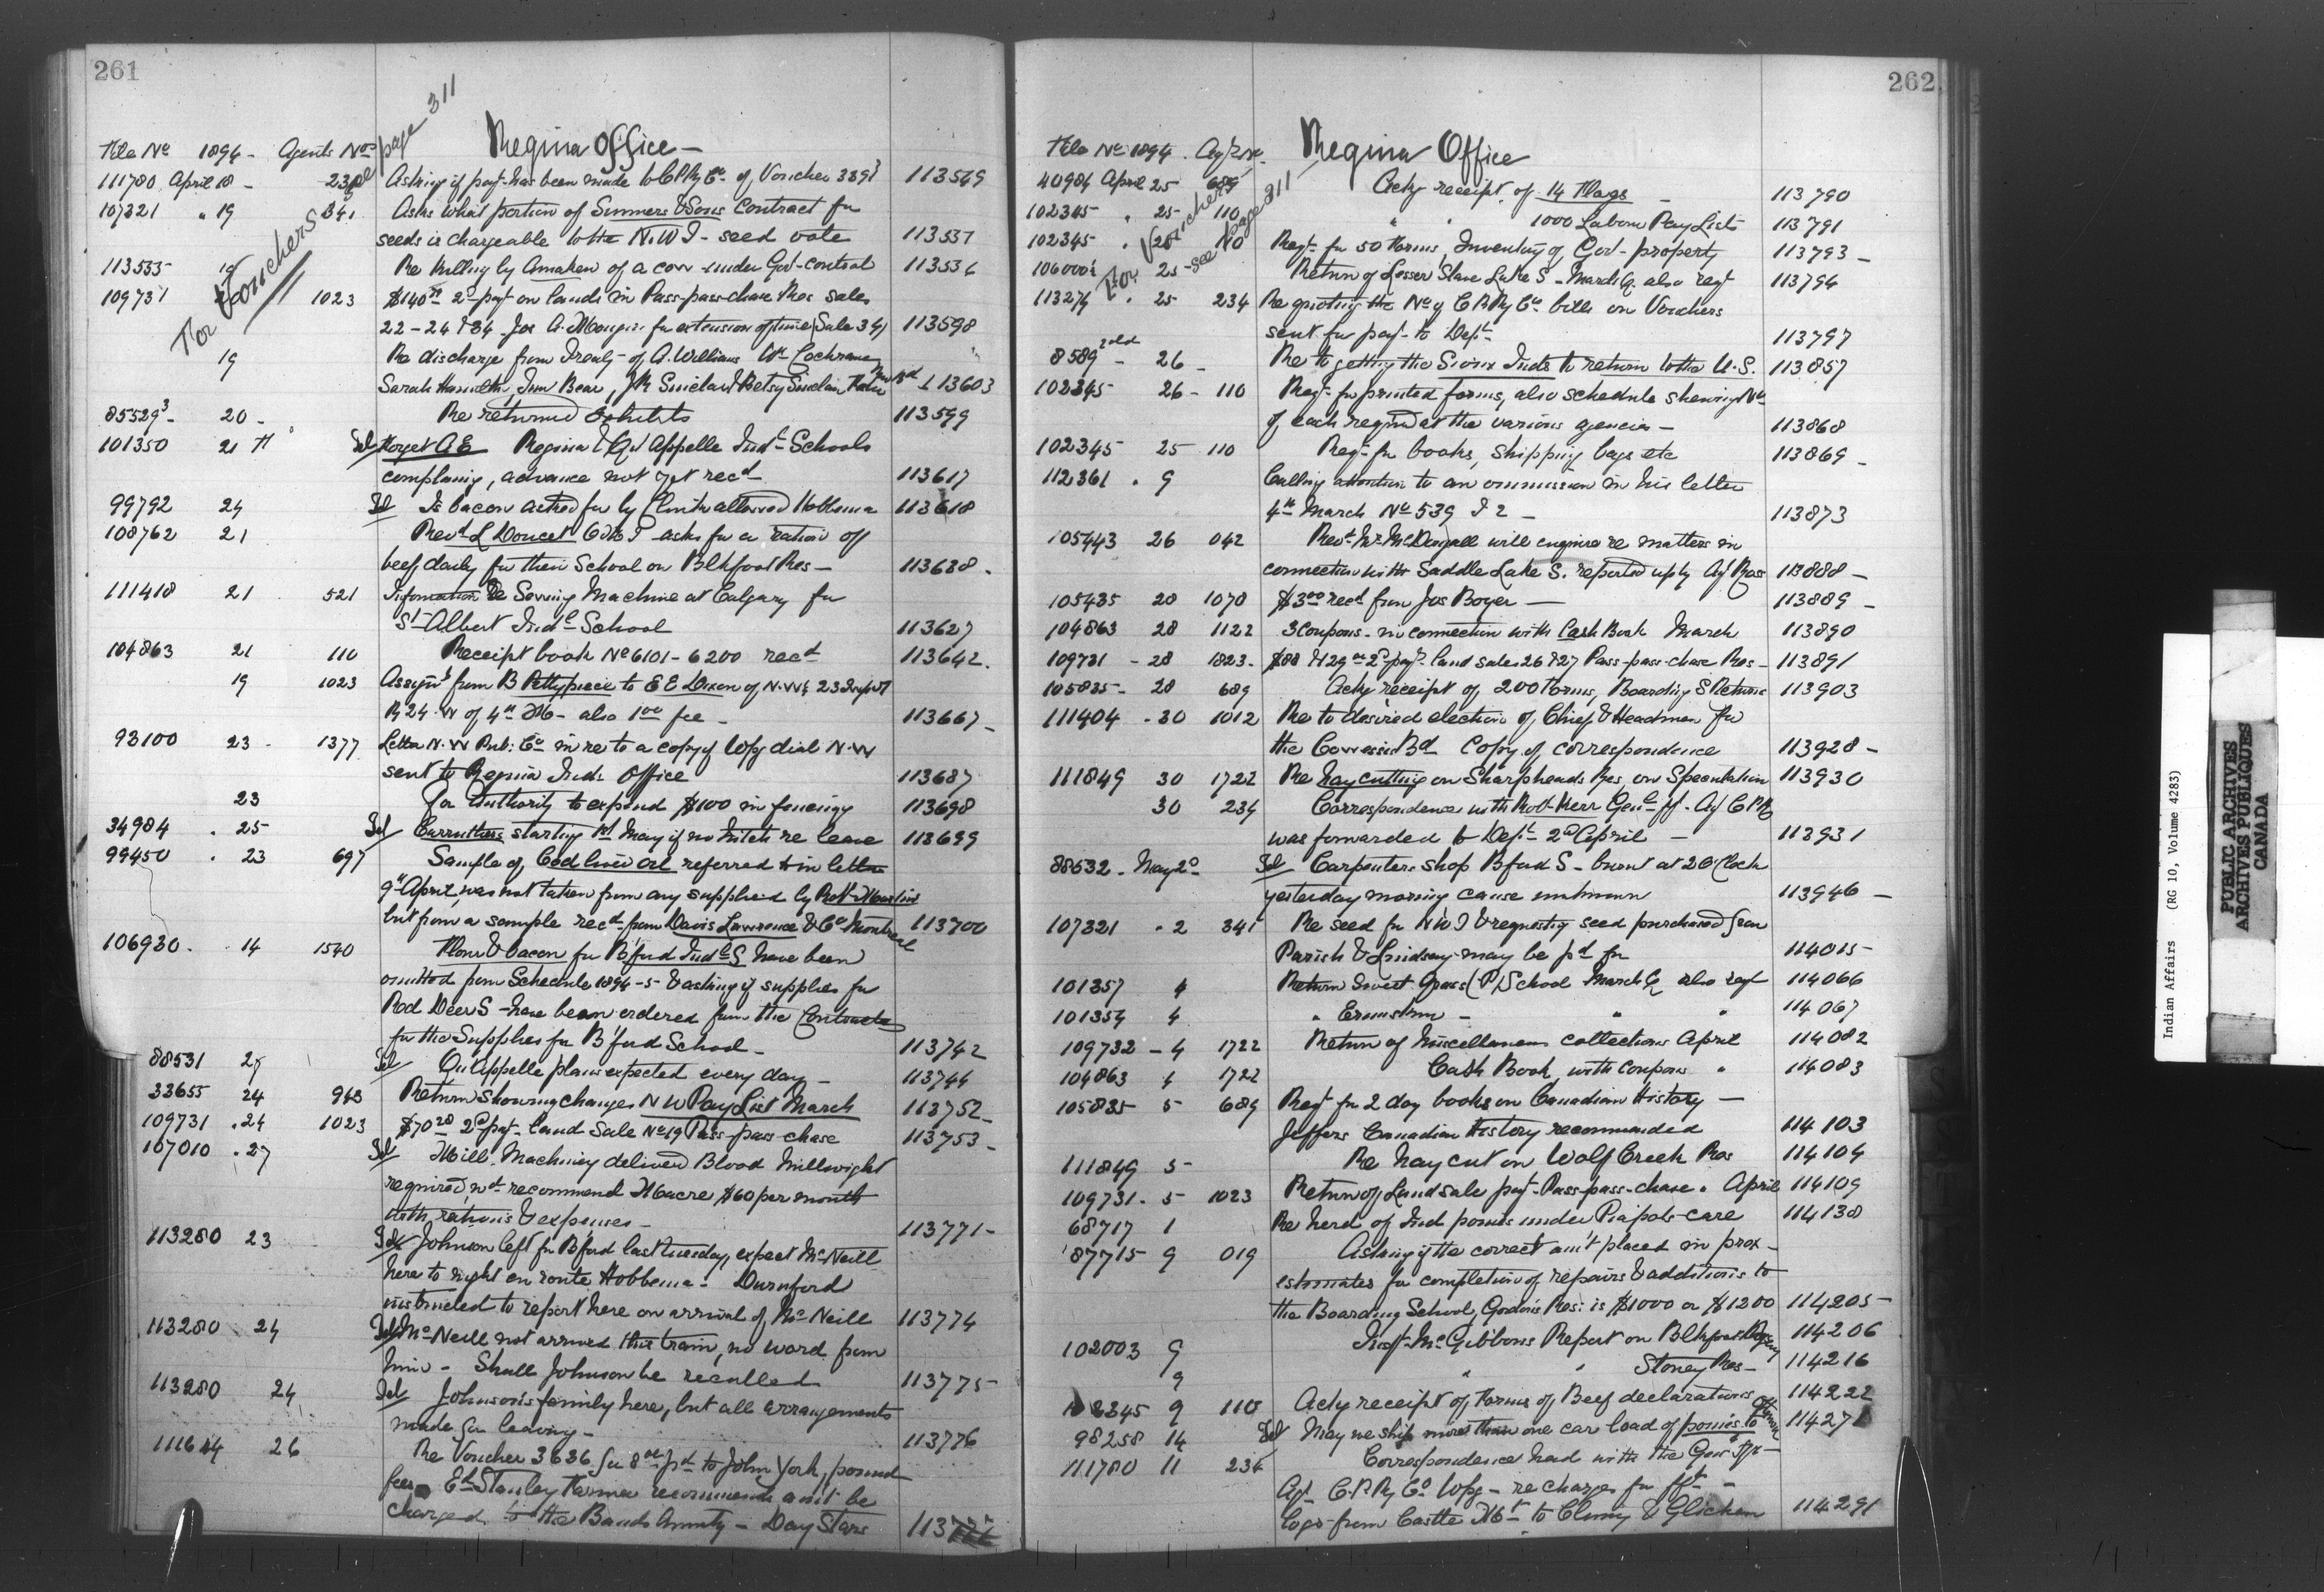 261
For Vouchers see page 311
Regina Office -
File No 1894 - Agents Nos
111780 April 18 - 234 Asking if payt has been made to C.P.Ry Co of Voucher 3391 113549
107321 " 19 341 Asks what portion of Simmers & Sons contract for
seeds is chargeable to the N.W.T - seed vote 113557
113555 19 Re killing by of a cow under Govt control
109731 1023 $140 2d payt on lands in Pass-pass-chase Res sales
22-24 & 34 Jos A. for extension of time Sale 34 113598
19 Re discharge from Treaty of A. Williams Wm Cochrane
Sarah Jim Bear, J R Sinclair & Betsy Sinclair 113603
85529 3 - 20 - Re returned Exhibits 113599
101350 21 Tel Forget A E Regina & Qu'Appelle Indl Schools
complaing, advance not yet recd 113617
99792 24 Tel Is bacon asked for by Clink allowed Hobbema 113618
108762 21 Revd L Doucet O.M.I asks for a ration of
beef daily for their School on Blkfoot Res - 113638
111418 21 521 Information Re Sewing Machine at Calgary for
St Albert Indl School 113627
104863 21 110 Receipt book No 6101-6200 recd 113642
19 1023 Assignt from B Pettypiece to E E Dixon of N.W 1/4 23
R 24 W of 4th M - also 1 00 fee - 113667
93100 23 - 1377 Letter N.W Pub: Co in re to a copy of Wpg dial N.W
sent to Regina Inds Office 113687
23 For Authority to expend $100 in fencing 113698
34984 . 25 Tel Carruthers starting 1st May if no hitch re lease 113699
99450 . 23 697 Sample of Cod liver oil referred to in letter
9th April, was not taken from any supplied by Robt Martin
but from a sample recd from Davis Lawrence & Co Montreal 113700
106930 . 14 1540 Flour & bacon for B'ford Indl S have been
omitted from Schedule 1894-5 & asking if supplies for
Red Deer S - have been ordered from the Contractor
for the Supplies for B'ford School - 113742
88531 27 Tel Qu'Appelle plans expected every day - 113744
33655 24 943 Return showing changes N W Pay List March 113752
109731 . 24 1023 $70 28 2d payt land sale No 19 Pass-pass-chase 113753
107010 . 27 Tel Mill Machinery delivered Blood millwright
required wd recommend $60 per month
with rations & expenses - 113771
113280 23 Tel Johnson left for B'ford last Tuesday, expect McNeill
here to night en route Hobbema - Durnford
instructed to report here on arrival of McNeill 113774
113280 24 Tel McNeill not arrived this train, no word from
him - Shall Johnson be recalled 113775
113280 24 Tel Johnson's family here, but all arrangements
made for leaving - 113776
111644 26 Re Voucher 3636 for 8 00 pd to John York, pound
fees Ed Stanley Farmer recommends amt be
charged to the Bands Annuity - Day Stars
262
For Vouchers see page 311
Regina Office
File No 1894 . Agts No.
40984 April 25 689 Ackg receipt of 14 Flags - 113790
102345 " 25 110 " " 1000 Labour Pay Lists 113791
102345 . 25 110 Reqt for 50 Forms, Inventory of Govt - property 113793
25 Return of Lesser Slave Lake S - March Q. also reqt 113794
113274 . 25 234 Re quoting the No of C P Ry Co bills on Vouchers
sent for payt to Dept 113797
8589 2 old - 26 - Re to getting the Sioux Inds to return to the U.S. 113857
102345 26 - 110 Reqt for printed forms, also schedule shewing No
of each reqrd at the various agencies - 113868
102345 25 110 Reqt for books, shipping bags etc 113869
112361 . 9 Calling attention to an ommission in his letter
4th March No 539 & 2 - 113873
105443 26 042 Revt Mr McDougall will enquire re matters in
connection with Saddle Lake S. reported up by Agt Ross 113888
105435 28 1070 $3 00 recd from Jos Boyer - 113889
104863 28 1122 3 Coupons - in connection with Cash Book March 113890
109731 - 28 1823 . $88 & 29 2d payt land sales 26 & 27 Pass-pass-chase Res - 113891
105835 - 28 689 Ackg receipt of 200 Forms, Boarding S Returns 113903
111404 - 30 1012 Re to desired election of Chief & Headmen for
the Cowessess Bd Copy of correspondence 113928
111849 30 1722 Re hay cutting on Sharpheads Res on Speculation 113930
30 234 Correspondence with Robt Kerr Genl Ff . Agt C P R
was forwarded to Dept 2d April - 113931
88532 . May 2d Tel Carpenters shop B'ford S - burnt at 2 O'Clock
yesterday morning cause unknown 113946
107321 . 2 341 Re seed for N W T & requestig seed purchased from
Parish & Lindsay may be pd for 114015
101357 4 Return Sweet Grass (P) School March Q also reqt 114066
101354 4 " Ermskin - " " 114067
109732 - 4 1722 Return of Miscellaneous collections April 114082
104863 4 1722 Cash Book with coupons " 114083
105835 - 5 689 Reqt for 2 day books on Canadian History -
Jeffers Canadian History recommended 114103
111849 5 - Re hay cut on Wolf Creek Res 114104
109731 . 5 1023 Return of Land sale payt Pass-pass-chase . April 114109
68717 1 Re herd of Ind ponies under Piapots care 114138
87715 9 019 Asking if the correct amt placed in
estimates for completion of repairs & additions to
the Boarding School, Gordons Res: is $1000 or $1200 114205
102003 9 Inspt McGibbons Report on Blkfoot Agency 114206
9 " " Stoney Res - 114216
102345 9 110 Ackg receipt of Forms of Beef declarations 114222
98258 14 Tel May we ship more than one car load of ponies to Ottawa 11427
111780 11 234 Correspondence had with the Genl Ff -
Agt C.P.Ry Co Wpg - re charges for fft -
logs from Castle Mt to Cluny & Gleichen 114291
Indian Affairs (RG 10, Volume 4283)
PUBLIC ARCHIVES
ARCHIVES PUBLIQUES
CANADA